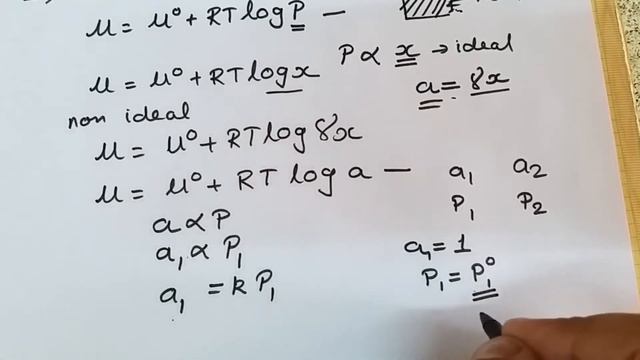 μ = μ⁰ + RT log P —
μ = μ⁰ + RT log x P ∝ x → ideal
a = 8x
non ideal
μ = μ⁰ + RT log 8x
μ = μ⁰ + RT log a — a₁ a₂
a ∝ P P₁ P₂
a₁ ∝ P₁ a₁ = 1
a₁ = k P₁ P₁ = P₁⁰